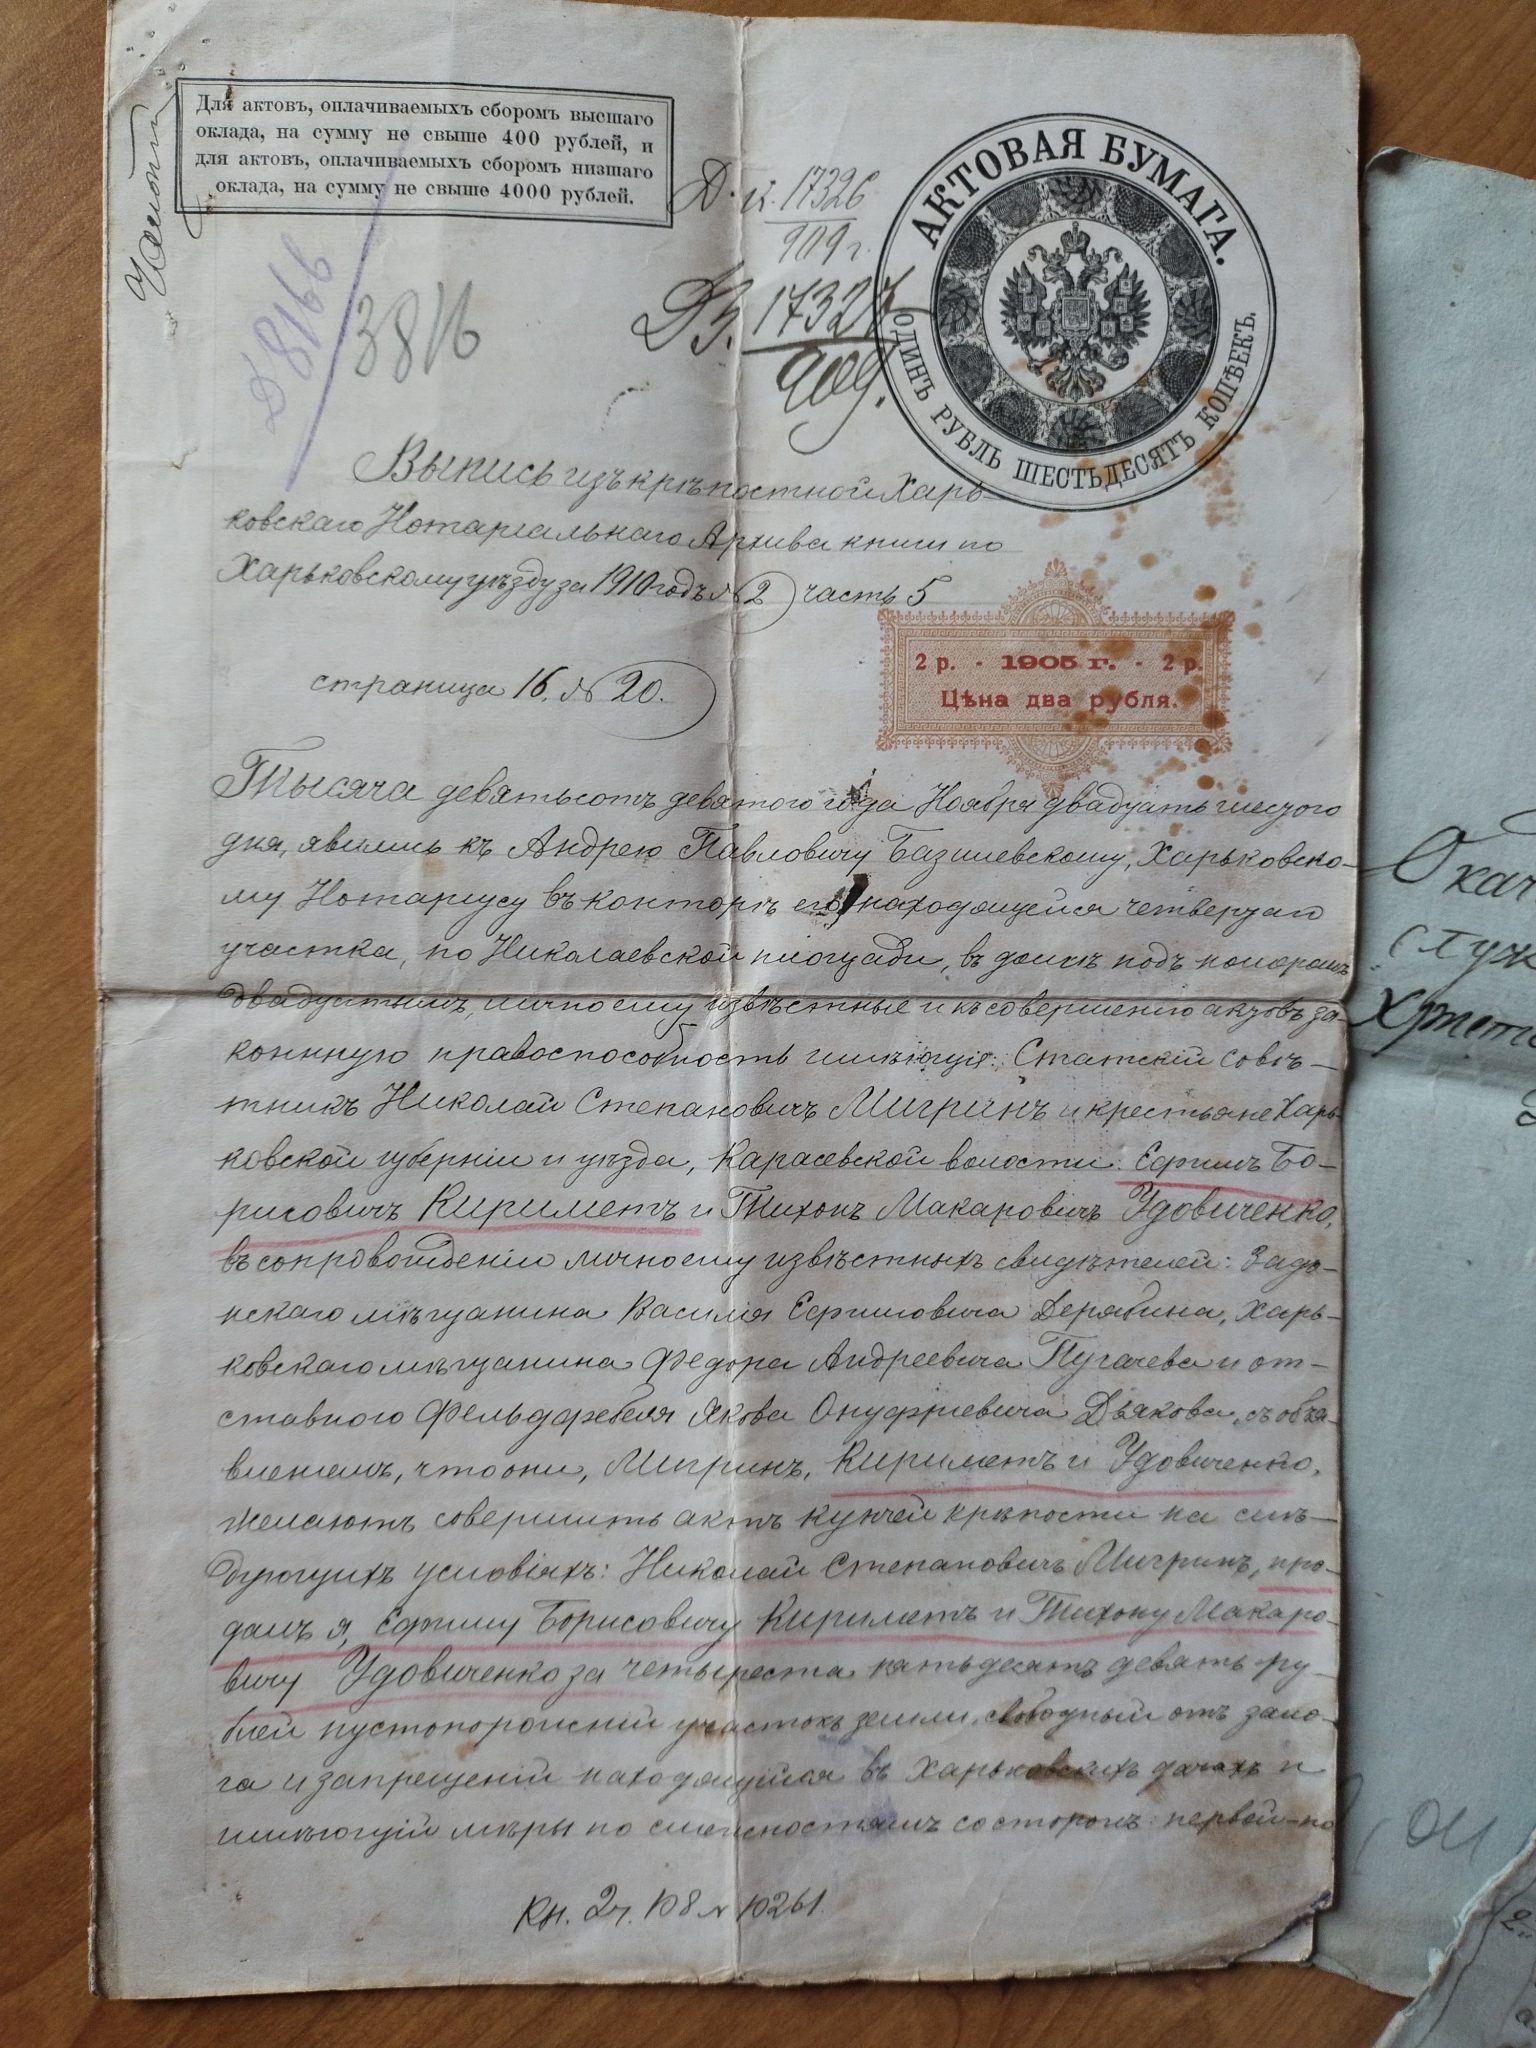 Для актовъ, оплачиваемыхъ сборомъ высшаго
оклада, на сумму не свыше 400 рублей, и
для актовъ, оплачиваемыхъ сборомъ низшаго
оклада, на сумму не свыше 4000 рублей.
17326
909 г.
АКТОВАЯ БУМАГА.
ОДИНЪ РУБЛЬ ШЕСТЬДЕСЯТЪ КОПѢЕКЪ.
8166
3816
17327
909.
Выпись изъ крѣпостной Харь-
ковскаго Нотаріальнаго Архива книги по
Харьковскому уѣзду за 1910 годъ № 2 часть 5
2 р. - 1905 г. - 2 р.
Цѣна два рубля.
страница 16. № 20.
Тысяча девятьсотъ девятого года Ноября двадцать шестого
дня, явились къ Андрею Павловичу Базилевскому, Харьковско-
му Нотаріусу въ конторѣ его, находящейся четвертаго
участка, по Николаевской площади, въ домѣ подъ номеромъ
двадцатымъ, лично ему извѣстные и къ совершенію актовъ за-
конную правоспособность имѣющіе: Статскій Совѣ-
тникъ Николай Степановичъ Мигринъ и крестьяне Харь-
ковской губерніи и уѣзда, Карасевской волости: Ефимъ Бо-
рисовичъ Кирилметъ и Тихонъ Макаровичъ Удовиченко,
въ сопровожденіи лично ему извѣстныхъ свидѣтелей: Задо-
нскаго мѣщанина Василія Ефимовича Дерябина, Харь-
ковскаго мѣщанина Федора Андреевича Пугачева и от-
ставного Фельдфебеля Якова Онуфріевича Дьякова, съ объя-
вленіемъ, что они, Мигринъ, Кирилметъ и Удовиченко,
желаютъ совершить актъ купчей крѣпости на слѣ-
дующихъ условіяхъ: Николай Степановичъ Мигринъ, про-
далъ я, Ефиму Борисовичу Кирилметъ и Тихону Макаро-
вичу Удовиченко за четыреста пятьдесятъ девять ру-
блей пустопорожній участокъ земли, свободный отъ зало-
га и запрещеній находящійся въ Харьковскихъ дачахъ и
имѣющій мѣры по смежностямъ со сторонъ: первой-по
Кн. 2 ч. 108 № 10261